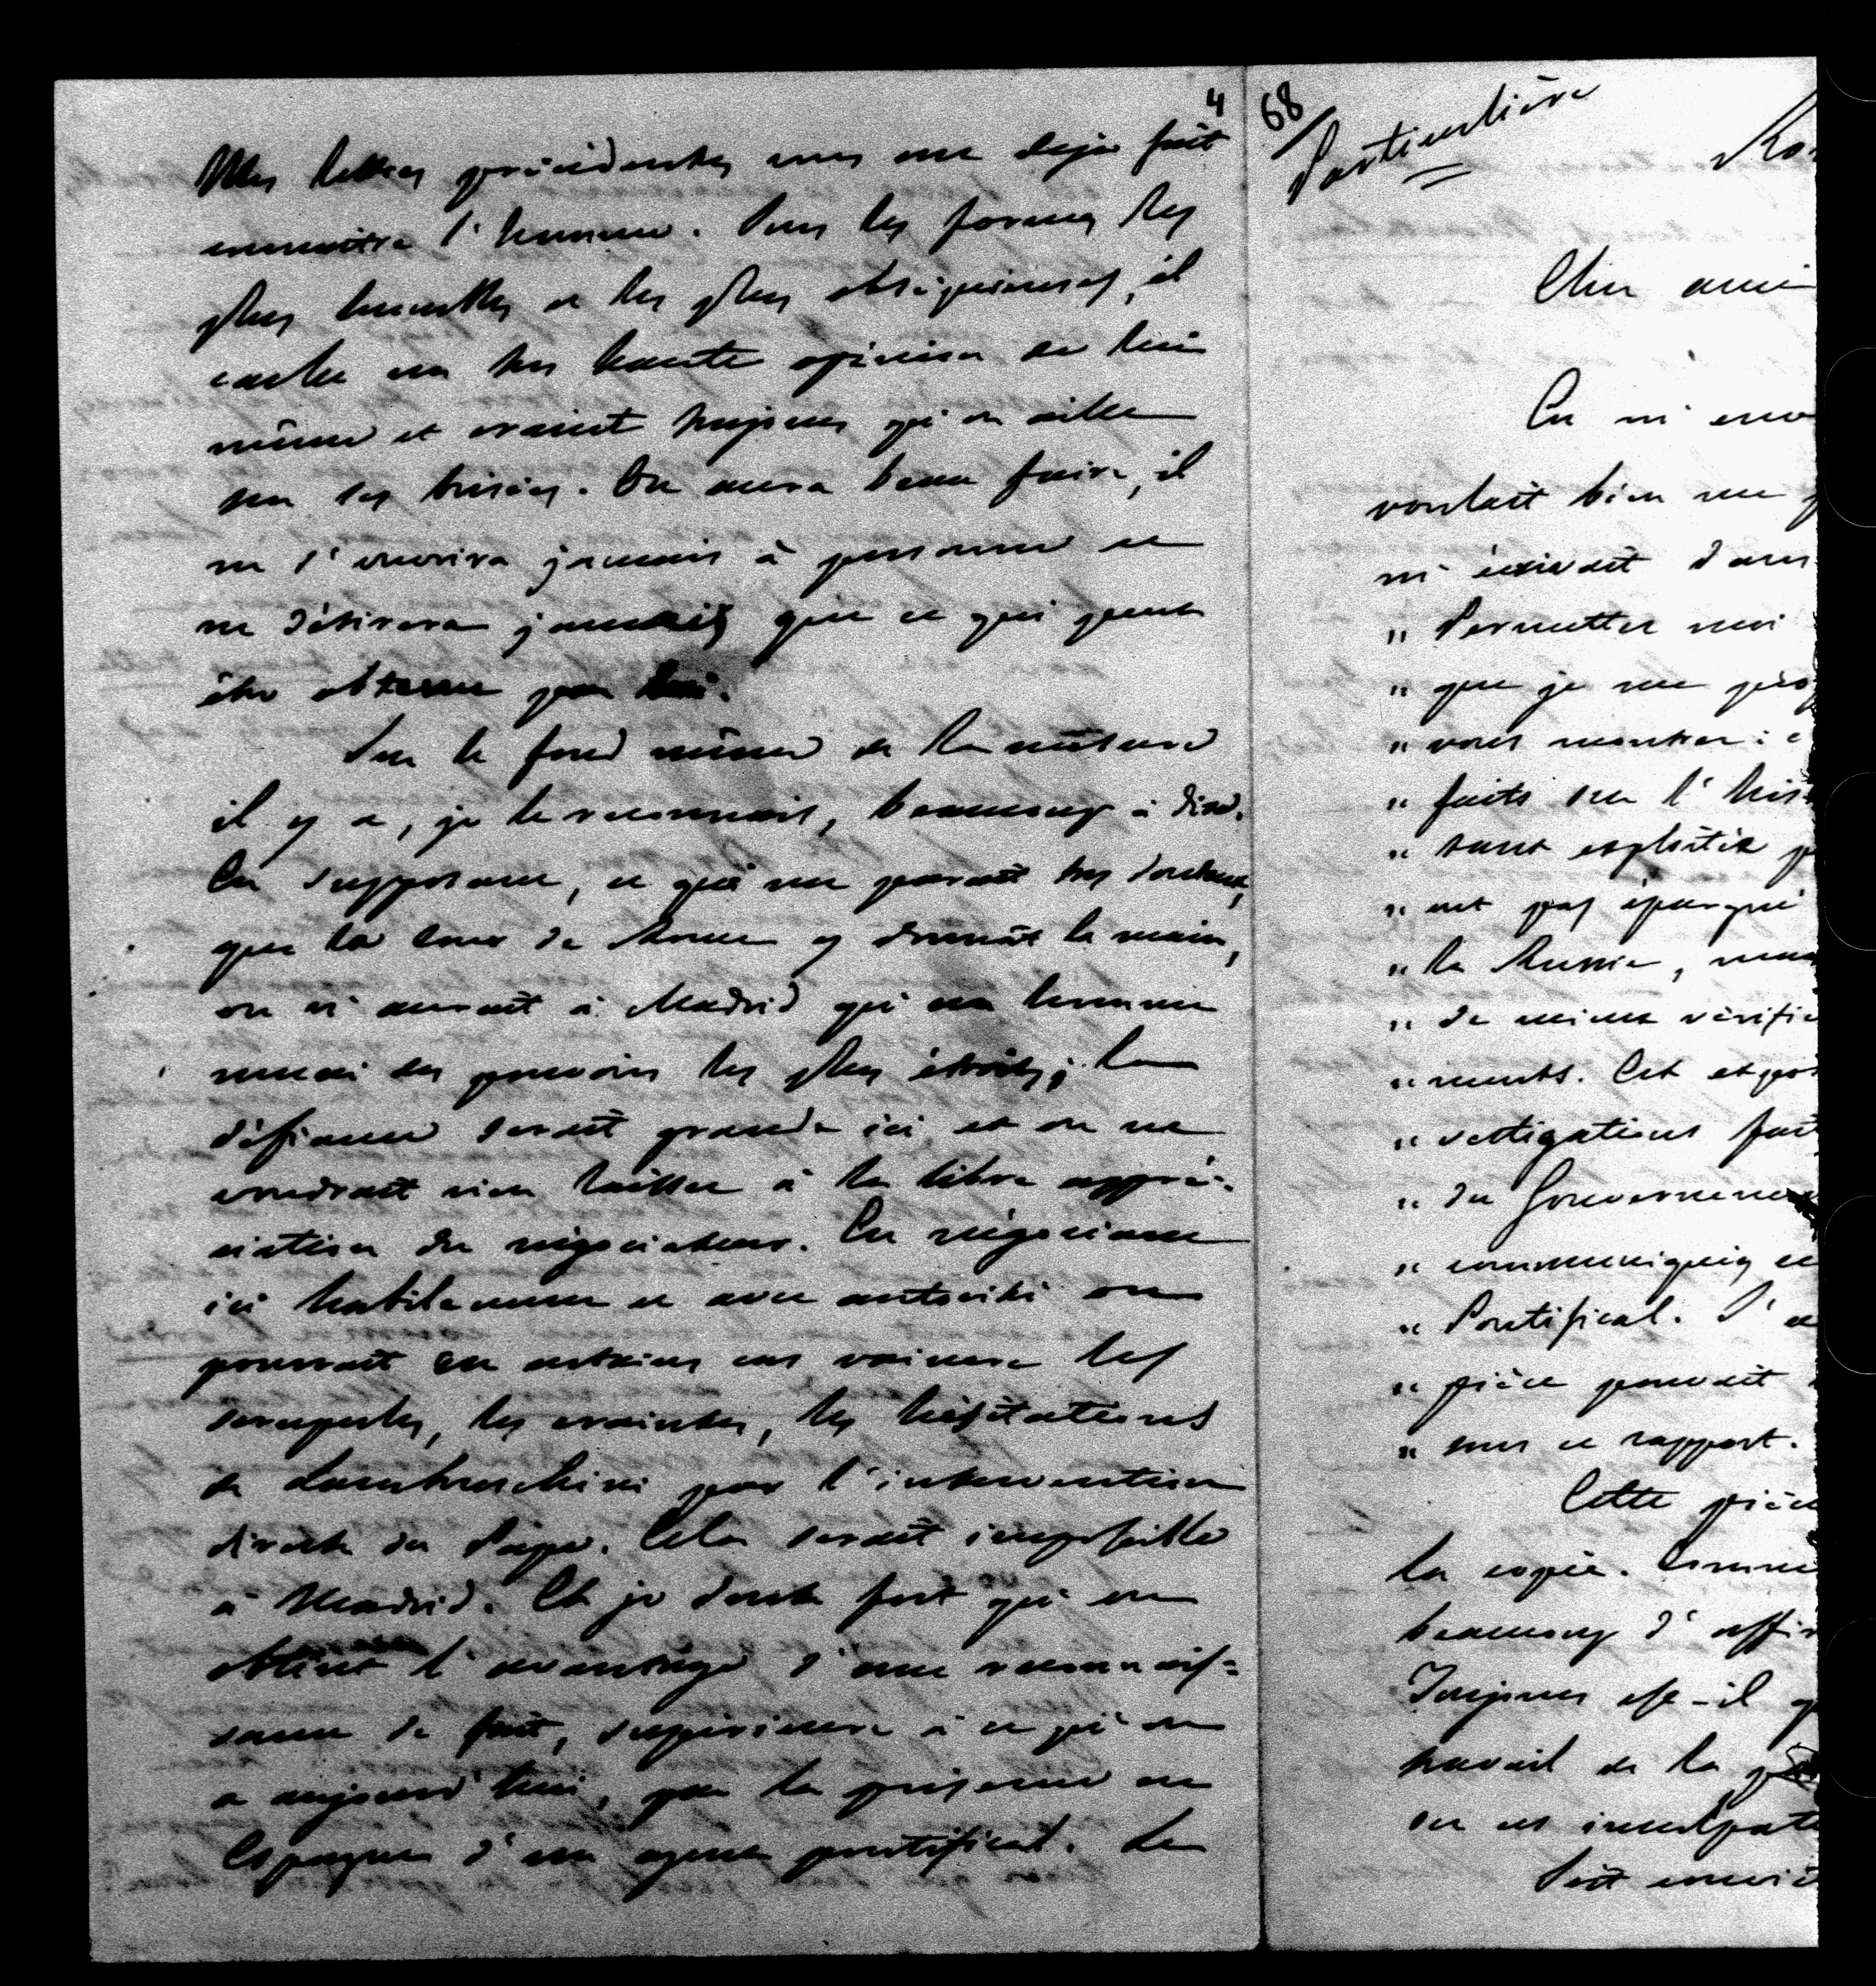 4
Mes lettres précédentes vous ont déja fait
connaître l'homme. Sous les formes les
plus humbles et les plus obséquieuses, il
cache une très haute opinion de lui
même et craint toujours qu'on aille
sur ses brisées. On aura beau faire, il
ne s'ouvrira jamais à personne et
ne désirera jamais que ce qui peut
être obtenu par lui.
Sur le fond même de la mesure
il y a, je le reconnais, beaucoup à dire.
En supposant, ce qui me parait très douteux,
que la Cour de Rome y donnât la main,
on n'aurait à Madrid qu'un homme
muni des pouvoirs les plus étroits; la
défiance serait grande ici et on ne
voudrait rien laisser à la libre appré-
ciation du négociateur. En négociant
ici habilement et avec autorité on
pourrait en certains cas vaincre les
scrupules, les craintes, les hésitations
de Lambruschini par l'intervention
directe du Pape. Cela serait impossible
à Madrid. Et je doute fort qu'on
obtint l'avantage d'une reconnais=
sance de fait, supérieure à ce qu'on
a aujourd'hui, par la présence en
Espagne d'un agent pontifical. La
68
Particulière
Ro
Cher ami
En m'envo
voulait bien me
m'écrivait dans
" Permettez moi
" que je me pro
" vous montrer: c
" faits sur l'his
" sant exploitée p
" ont pas épargné
" la Russie, mais
" de mieux vérifié
" ments. Cet
" vestigations fait
" du Gouverneme
" communiqués
" Pontifical. J'
" pièce pouvait
" sous ce rapport.
Cette pièce
la copie. Comme
beaucoup d'affir
Toujours est-il q
travail de la
on est inculpat
Soit convi